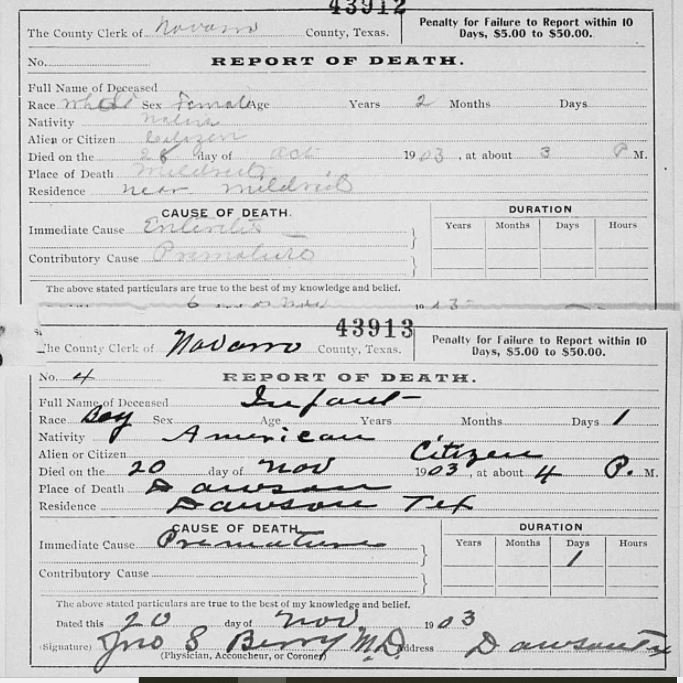 43912
The County Clerk of Navarro County, Texas.
Penalty for Failure to Report within 10 Days, $5.00 to $50.00.
No. REPORT OF DEATH.
Full Name of Deceased
Race White Sex Female Age Years 2 Months Days
Nativity Native
Alien or Citizen Citizen
Died on the 28 day of Oct 1903, at about 3 P M.
Place of Death Mildred
Residence near Mildred
CAUSE OF DEATH. DURATION
Immediate Cause Enteritis Years Months Days Hours
Contributory Cause Premature
The above stated particulars are true to the best of my knowledge and belief.
6 Nov 1903
43913
The County Clerk of Navarro County, Texas.
Penalty for Failure to Report within 10 Days, $5.00 to $50.00.
No. 4 REPORT OF DEATH.
Full Name of Deceased Infant
Race Boy Sex Age Years Months Days 1
Nativity American
Alien or Citizen Citizen
Died on the 20 day of Nov 1903, at about 4 P. M.
Place of Death Dawson
Residence Dawson Tex
CAUSE OF DEATH. DURATION
Immediate Cause Premature Years Months Days Hours
1
Contributory Cause
The above stated particulars are true to the best of my knowledge and belief.
Dated this 20 day of Nov 1903
(Signature) Jno S Berry M.D. Address Dawson Tex
(Physician, Accoucheur, or Coroner)